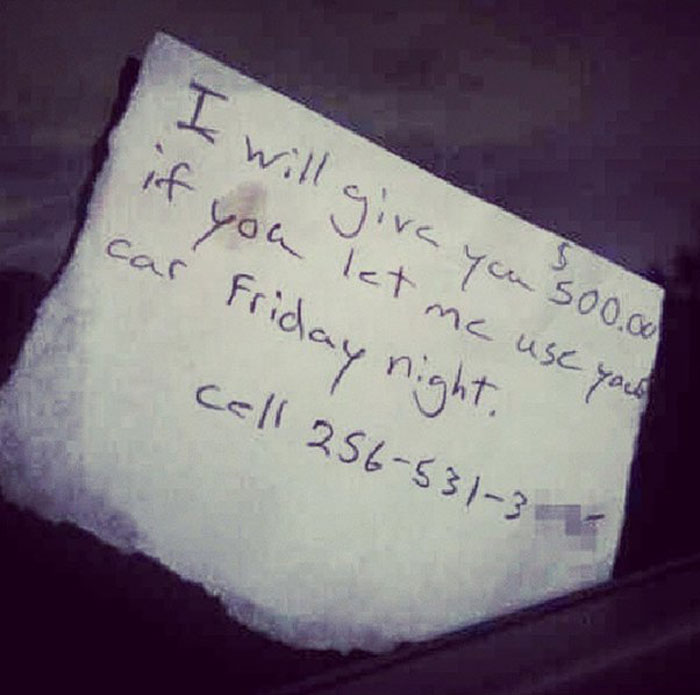 I will give you $500.00
if you let me use your
car Friday night.
Cell 256-531-3